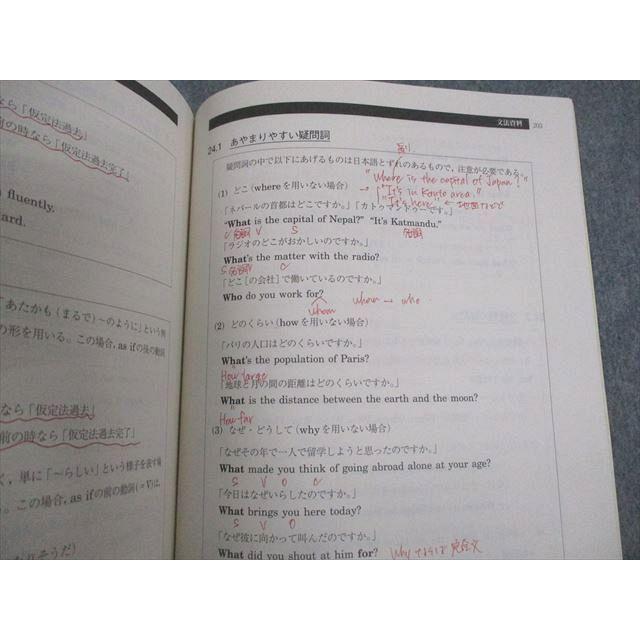 なら「仮定法過去」
前の時なら「仮定法過去完了」
fluently.
ard.
「あたかも（まるで）~のように」という例
の形を用いる。この場合, as if の後の動詞
なら「仮定法過去」
前の時なら「仮定法過去完了」
く，単に「~らしい」という様子を表す場
。この場合, as if の前の動詞(=V)は,
文法資料 203
24.1 あやまりやすい疑問詞
疑問詞の中で以下にあげるものは日本語とずれのあるもので，注意が必要である。
"Where is the capital of Japan?"
(1) どこ（where を用いない場合）
→ "It's in Kanto area."
「ネパールの首都はどこですか。」「カトゥマンドゥーです。」
"It's here"
"What is the capital of Nepal?" "It's Katmandu."
C V S
「ラジオのどこがおかしいのですか。」
What's the matter with the radio?
「どこ［の会社］で働いているのですか。」
Who do you work for?
whom
whom → who
(2) どのくらい（how を用いない場合）
「パリの人口はどのくらいですか。」
What's the population of Paris?
How large
「地球と月の間の距離はどのくらいですか。」
What is the distance between the earth and the moon?
How far
(3) なぜ・どうして（why を用いない場合）
「なぜその年で一人で留学しようと思ったのですか。」
What made you think of going abroad alone at your age?
S V O C
「今日はなぜいらしたのですか。」
What brings you here today?
S V O
「なぜ彼に向かって叫んだのですか。」
What did you shout at him for?